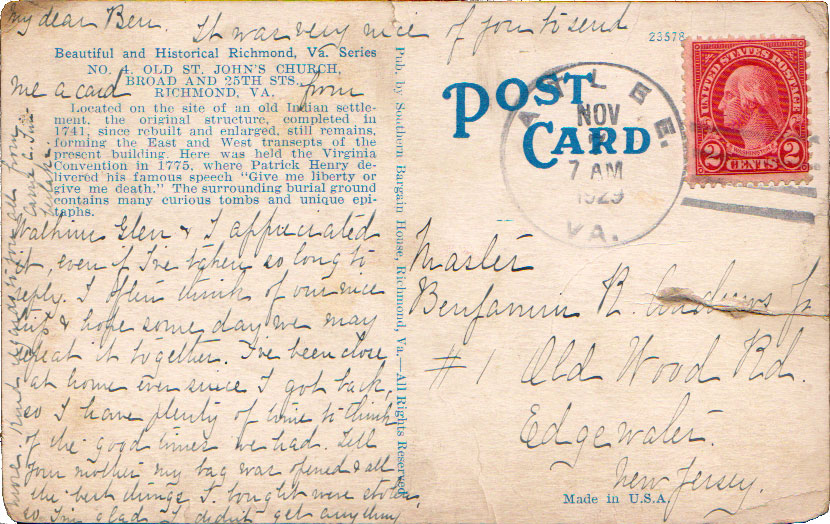 My dear Ben. It was very nice of you to send
Beautiful and Historical Richmond, Va. Series
NO. 4. OLD ST. JOHN'S CHURCH,
BROAD AND 25TH STS.
RICHMOND, VA.
me a card from
Located on the site of an old Indian settle-
ment, the original structure, completed in
1741, since rebuilt and enlarged, still remains,
forming the East and West transepts of the
present building. Here was held the Virginia
Convention in 1775, where Patrick Henry de-
livered his famous speech "Give me liberty or
give me death." The surrounding burial ground
contains many curious tombs and unique epi-
taphs.
Watkins Glen & I appreciated
it, even if I've taken so long to
reply. I often think of our nice
trip & hope some day we may
repeat it together. I've been close
at home ever since I got back,
so I have plenty of time to think
of the good times we had. Tell
your mother my bag was opened & all
the best things I bought were stolen,
so I'm glad I didn't get anything
more. Kind regards to you all from
Pub. by Southern Bargain House, Richmond, Va.—All Rights Reserved
23578
POST
CARD
ATLEE.
NOV
7 AM
1929
VA.
UNITED STATES POSTAGE
2 CENTS 2
Master
Benjamin R. Andrews Jr
#1 Old Wood Rd.
Edgewater.
New Jersey.
Made in U.S.A.